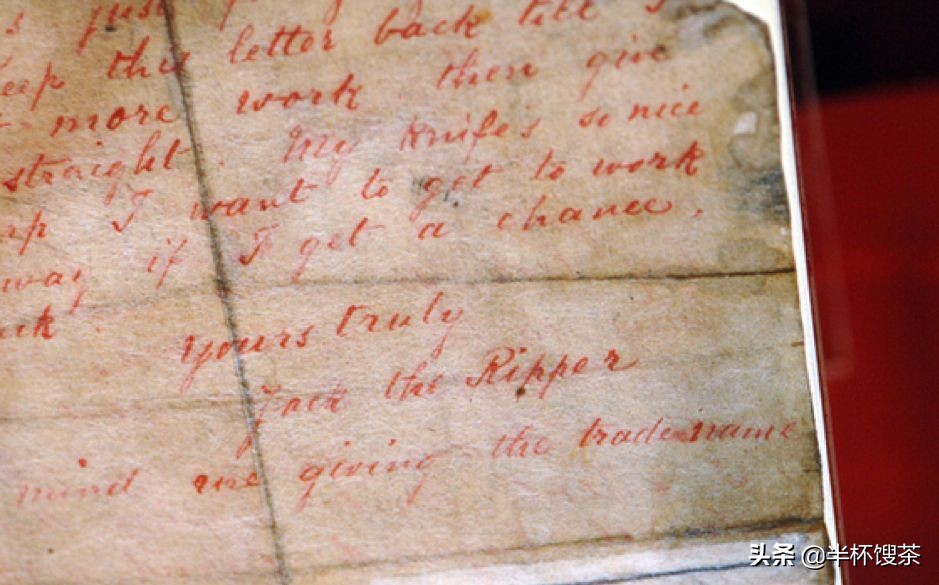 s just
keep this letter back till I
more work then give
straight. My knife's so nice
I want to get to work
away if I get a chance.
yours truly
Jack the Ripper
mind me giving the trade name
头条 @半杯馊茶